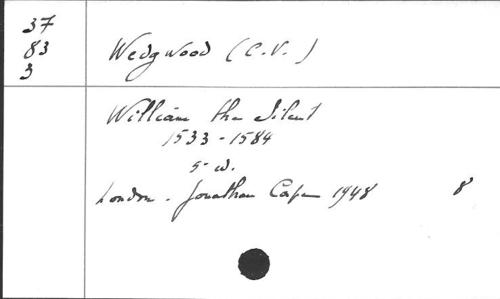 37
83
3
Wedgwood (C.V.)
William the Silent
1533-1584
London. Jonathan Cape 1948 8